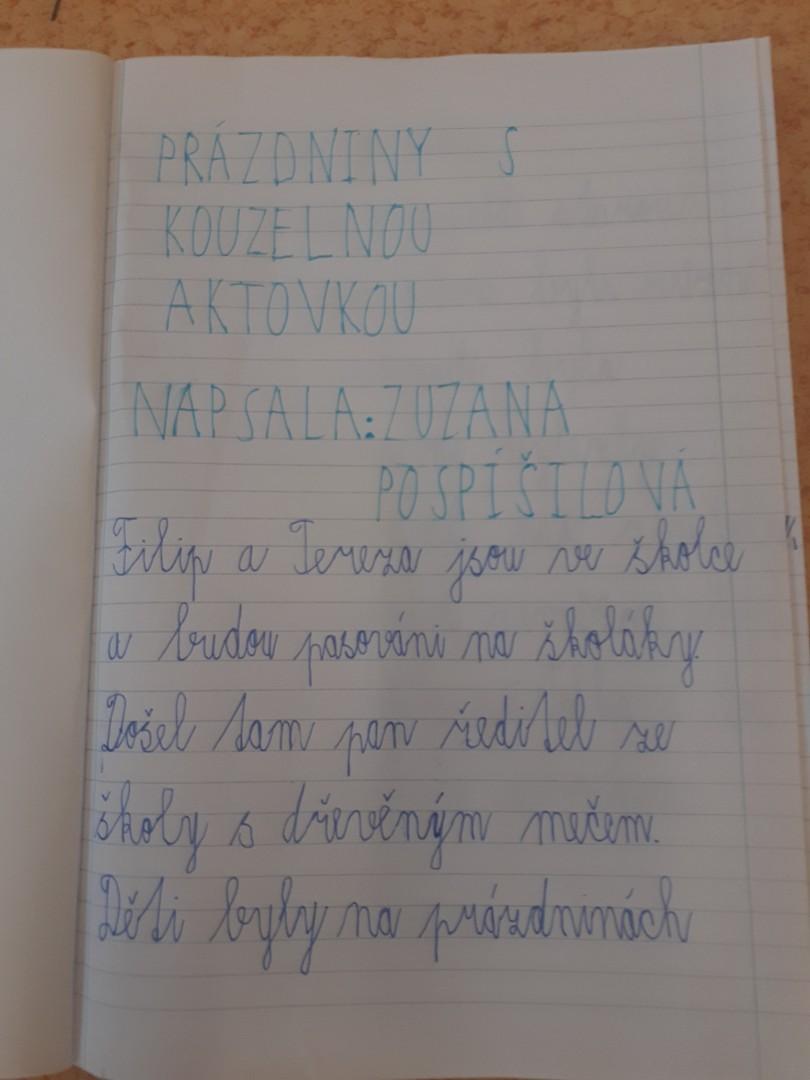 PRÁZDNINY S
KOUZELNOU
AKTOVKOU
NAPSALA: ZUZANA
POSPÍŠILOVÁ
Filip a Tereza jsou ve školce
a budou pasováni na školáky.
Došel tam pan ředitel ze
školy s dřevěným mečem.
Děti byly na prázdninách